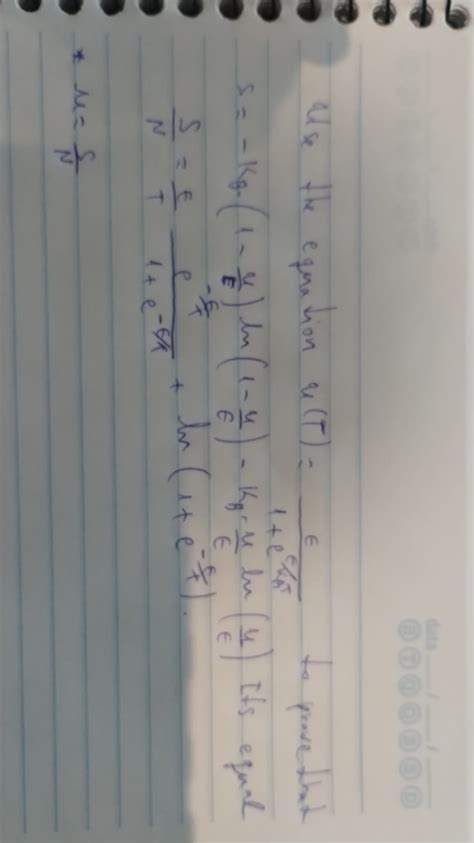 data __/__/__
D T Q Q S S D
Use the equation u(T) = ϵ / (1 + e^{ϵ/k_BT}) to prove that
s = - K_B (1 - u/ϵ) ln (1 - u/ϵ) - K_B u/ϵ ln (u/ϵ) Its equal
S/N = ϵ/T e^{-ϵ/T} / (1 + e^{-ϵ/T}) + ln (1 + e^{-ϵ/T}).
* u = S/N